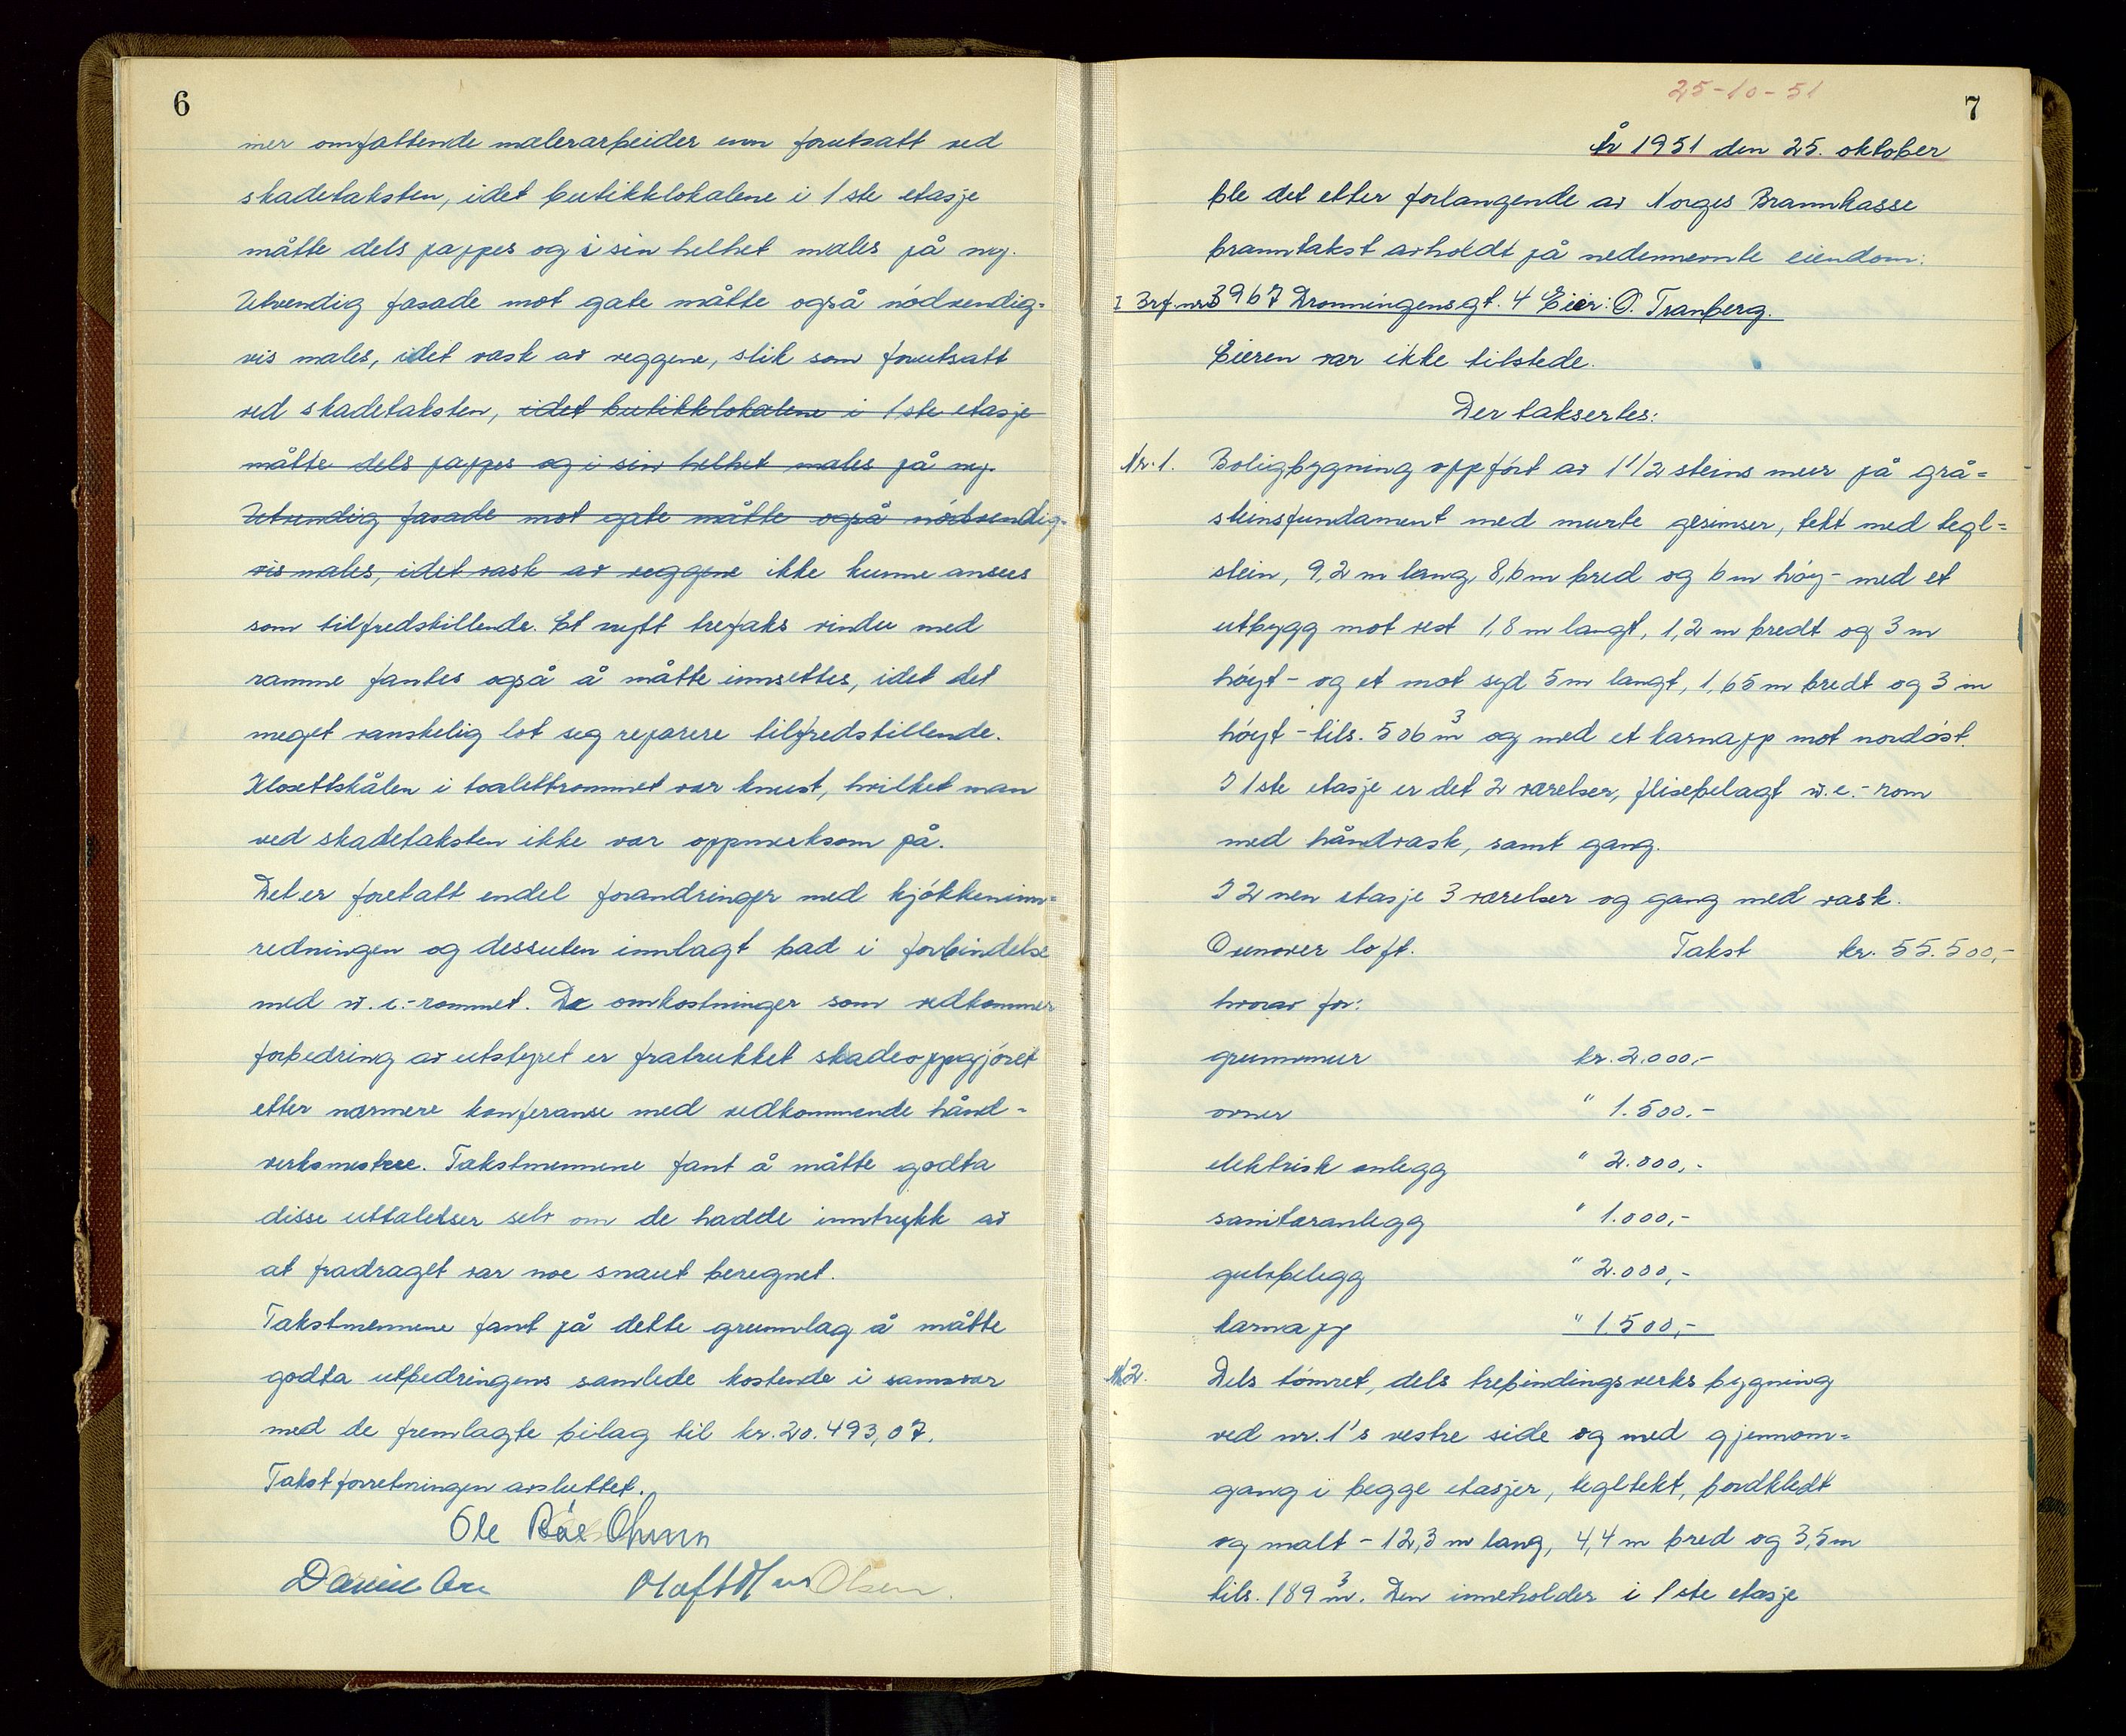 6
mer omfattende malerarbeider enn forutsatt ved
skadetaksten, idet butikklokalene i 1 ste etasje
måtte dels pappes og i sin helhet males på ny.
Utvendig fasade mot gate måtte også nödvendig=
vis males, idet vask av veggene, slik som forutsatt
ved skadetaksten, idet butikklokalene i 1 ste etasje
måtte dels pappes og i sin helhet males på ny.
Utvendig fasade mot gate måtte også nödvendig-
vis males, idet vask av veggene ikke kunne ansees
som tilfredstillende. Et nytt trefaks vindu med
ramme fantes også å måtte innsettes, idet det
meget vanskelig lot seg reparere tilfredstillende.
Klosettskålen i toalettrommet var knust, hvilket man
ved skadetaksten ikke var oppmerksom på.
Det er foretatt endel forandringer med kjökkeninn=
redningen og dessuten innlagt bad i forbindelse
med w.c.-rommet. De omkostninger som vedkommer
forbedring av utstyret er fratrukket skadeoppgjöret
etter nærmere konferanse med vedkommende hånd=
verksmestere. Takstmennene fant å måtte godta
disse uttalelser selv om de hadde inntrykk av
at fradraget var noe snaut beregnet.
Takstmennene fant på dette grunnlag å måtte
godta utbedringens samlede kostende i samsvar
med de fremlagte bilag til kr. 20.493,07.
Takstforretningen avsluttet.
Ole
Olsen
25-10-51
7
År 1951 den 25. oktober
ble det etter forlangende av Norges Brannkasse
branntakst avholdt på nedennevnte eiendom:
I Brf.nr 3967 Dronningensgt. 4 Eier: O. Tranberg.
Eieren var ikke tilstede.
Der taksertes:
Nr. 1. Boligbygning oppfört av 1 1/2 steins mur på grå=
steinsfundament med murte gesimser, tekt med tegl=
stein, 9,2 m lang, 8,6 m bred og 6 m höy - med et
utbygg mot vest 1,8 m langt, 1,2 m bredt og 3 m
höyt - og et mot syd 5 m langt, 1,65 m bredt og 3 m
höyt - tils. 506 m³ og med et karnapp mot nordöst.
I 1 ste etasje er det 2 værelser, flisebelagt w.c.-rom
med håndvask, samt gang.
I 2 nen etasje 3 værelser og gang med vask.
Ovenover loft. Takst kr. 55.500,-
hvorav for:
grunnmur kr. 2.000,-
ovner " 1.500.-
elektrisk anlegg " 2.000,-
sanitæranlegg " 1.000,-
gulvbelegg " 2.000,-
karnapp " 1.500,-
Nr. 2. Dels tömret, dels trebindingsverks bygning
ved nr. 1's vestre side og med gjennom=
gang i begge etasjer, tegltekt, bordkledt
og malt - 12,3 m lang, 4,4 m bred og 3,5 m
tils. 189 m³. Den inneholder i 1 ste etasje